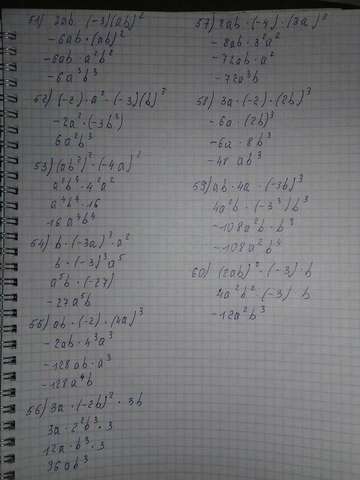 51) 2ab · (-3)(ab)²
-6ab · (ab)²
-6ab · a²b²
-6a³b³
52) (-2) · a² · (-3)(b)³
-2a² · (-3b³)
6a²b³
53) (ab²)² · (-4a)²
a²b⁴ · 4²a²
a⁴b⁴ · 16
16a⁴b⁴
54) b · (-3a)³ · a²
b · (-3)³a⁵
a⁵b · (-27)
-27a⁵b
55) ab · (-2) · (4a)³
-2ab · 4³a³
-128ab · a³
-128a⁴b
56) 3a · (-2b)² · 3b
3a · 2²b³ · 3
12a · b³ · 3
36ab³
57) 2ab · (-4) · (3a)²
-8ab · 3²a²
-72ab · a²
-72a³b
58) 3a · (-2) · (2b)³
-6a · (2b)³
-6a · 8b³
-48 ab³
59) ab · 4a · (-3b)³
4a²b · (-3³)b³
-108a²b · b³
-108a²b⁴
60) (2ab)² · (-3) · b
4a²b² · (-3) · b
-12a²b³